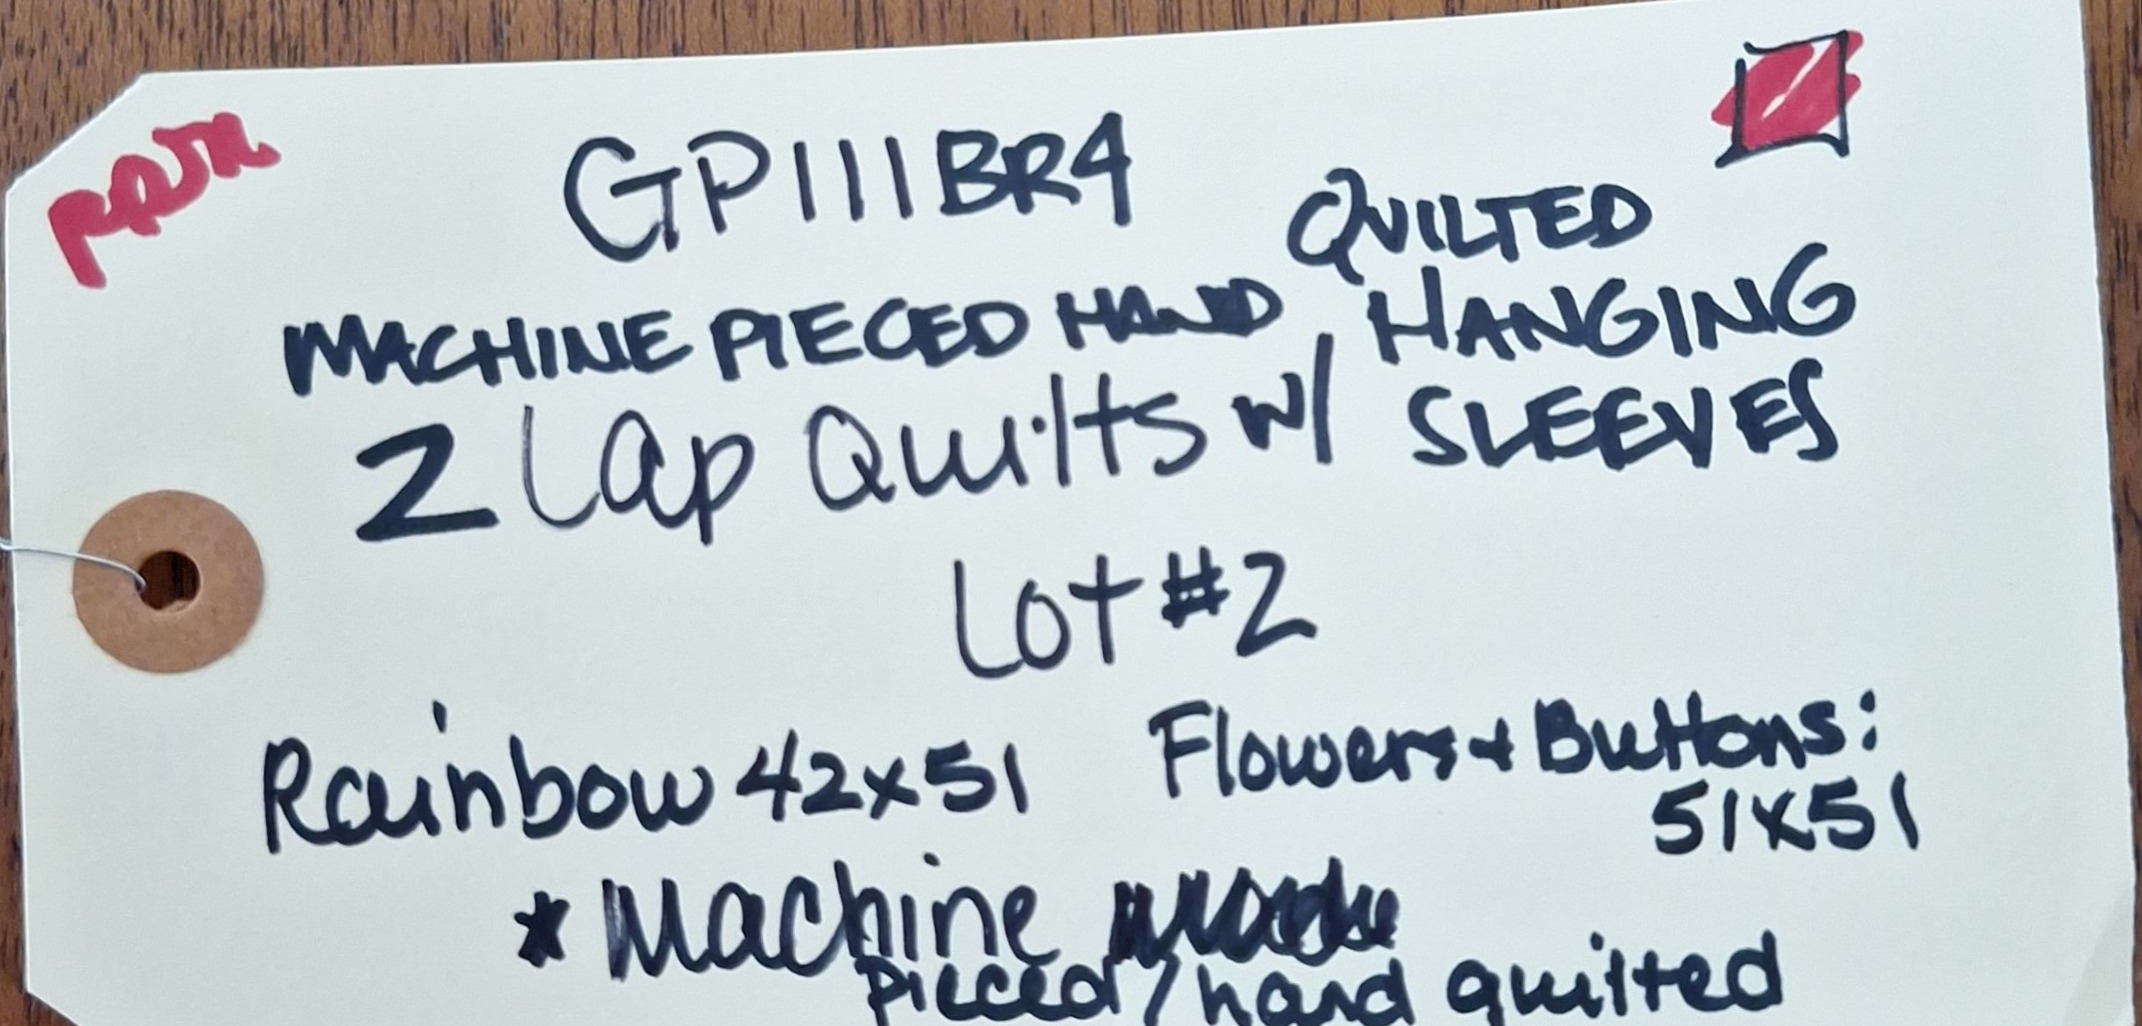 GP111BR4
MACHINE PIECED HAND QUILTED
2 Lap Quilts w/ HANGING SLEEVES
Lot #2
Rainbow 42x51 Flowers + Buttons:
51x51
* Machine
pieced / hand quilted